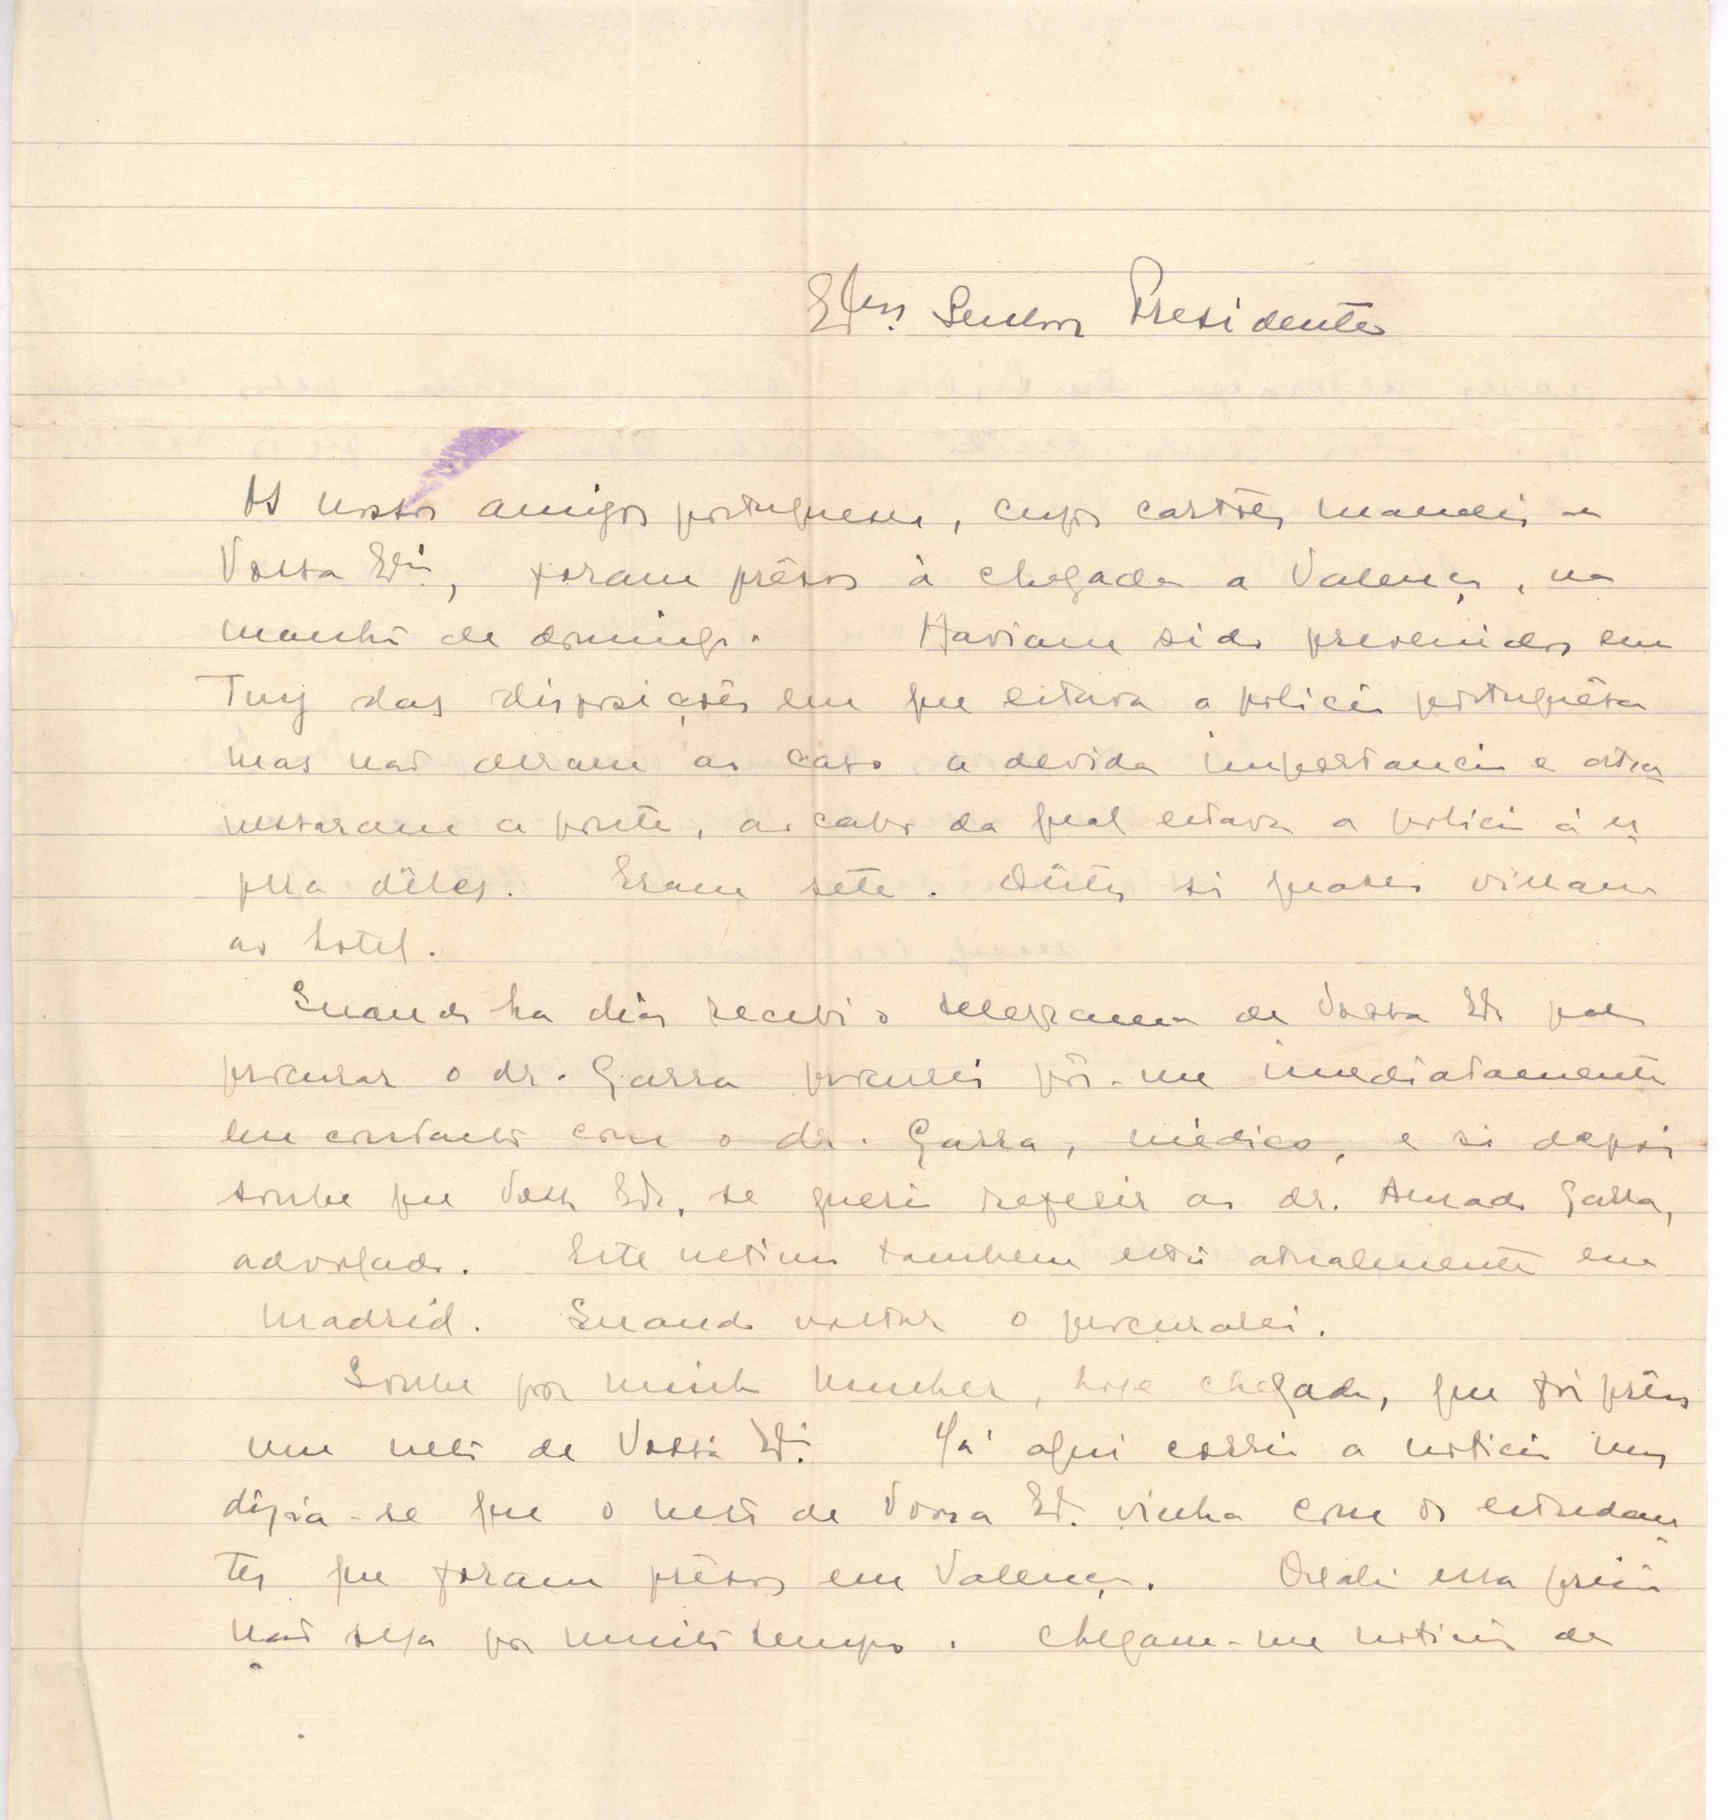 Exmº Senhor Presidente
Os nossos amigos portugueses, cujos cartões mandei a
Vossa Exª, foram prêsos à chegada a Valença, na
manhã de domingo. Haviam sido prevenidos em
Tuy das disposições em que estava a policia portuguêsa
mas não deram ao caso a devida importancia e atra
vessaram a ponte, ao cabo da qual estava a policia á es
pera dêles. Eram sete. Dêstes só quatro vieram
ao hotel.
Quando ha dias recebi o telegrama de Vossa Exª para
procurar o dr. Garra procurei pôr-me imediatamente
em contacto com o dr. Garra, médico, e só depois
soube que Vossa Exª, se queria referir ao dr. Amado Garra,
advogado. Este ultimo tambem está atualmente em
Madrid. Quando voltar o procurarei.
Soube por minha mulher, hoje chegada, que foi prêso
um neto de Vossa Exª. Já aqui corria a noticia mas
dizia-se que o neto de Vossa Exª. vinha com os estudan
tes que foram prêsos em Valença. Oxalá essa prisão
não seja por muito tempo. Chegam-me noticias de